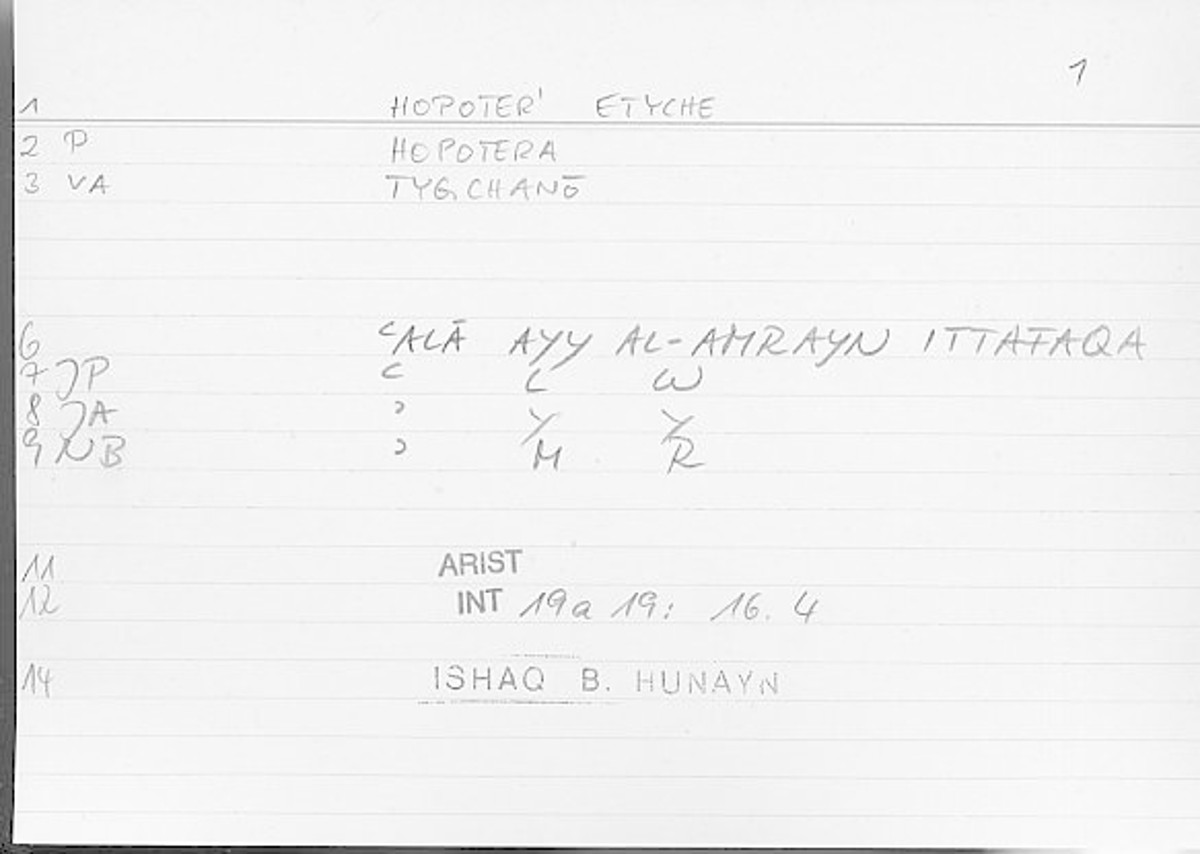 1
1 HOPOTER' ETYCHE
2 P HOPOTERA
3 VA TYG,CHANŌ
6 ʿALĀ AYY AL-AMRAYN ITTAFAQA
7 JP ʿ L W
8 JA ʾ Y Y
9 NB ʾ M R
11 ARIST
12 INT 19a 19: 16. 4
14 ISHAQ B. HUNAYN